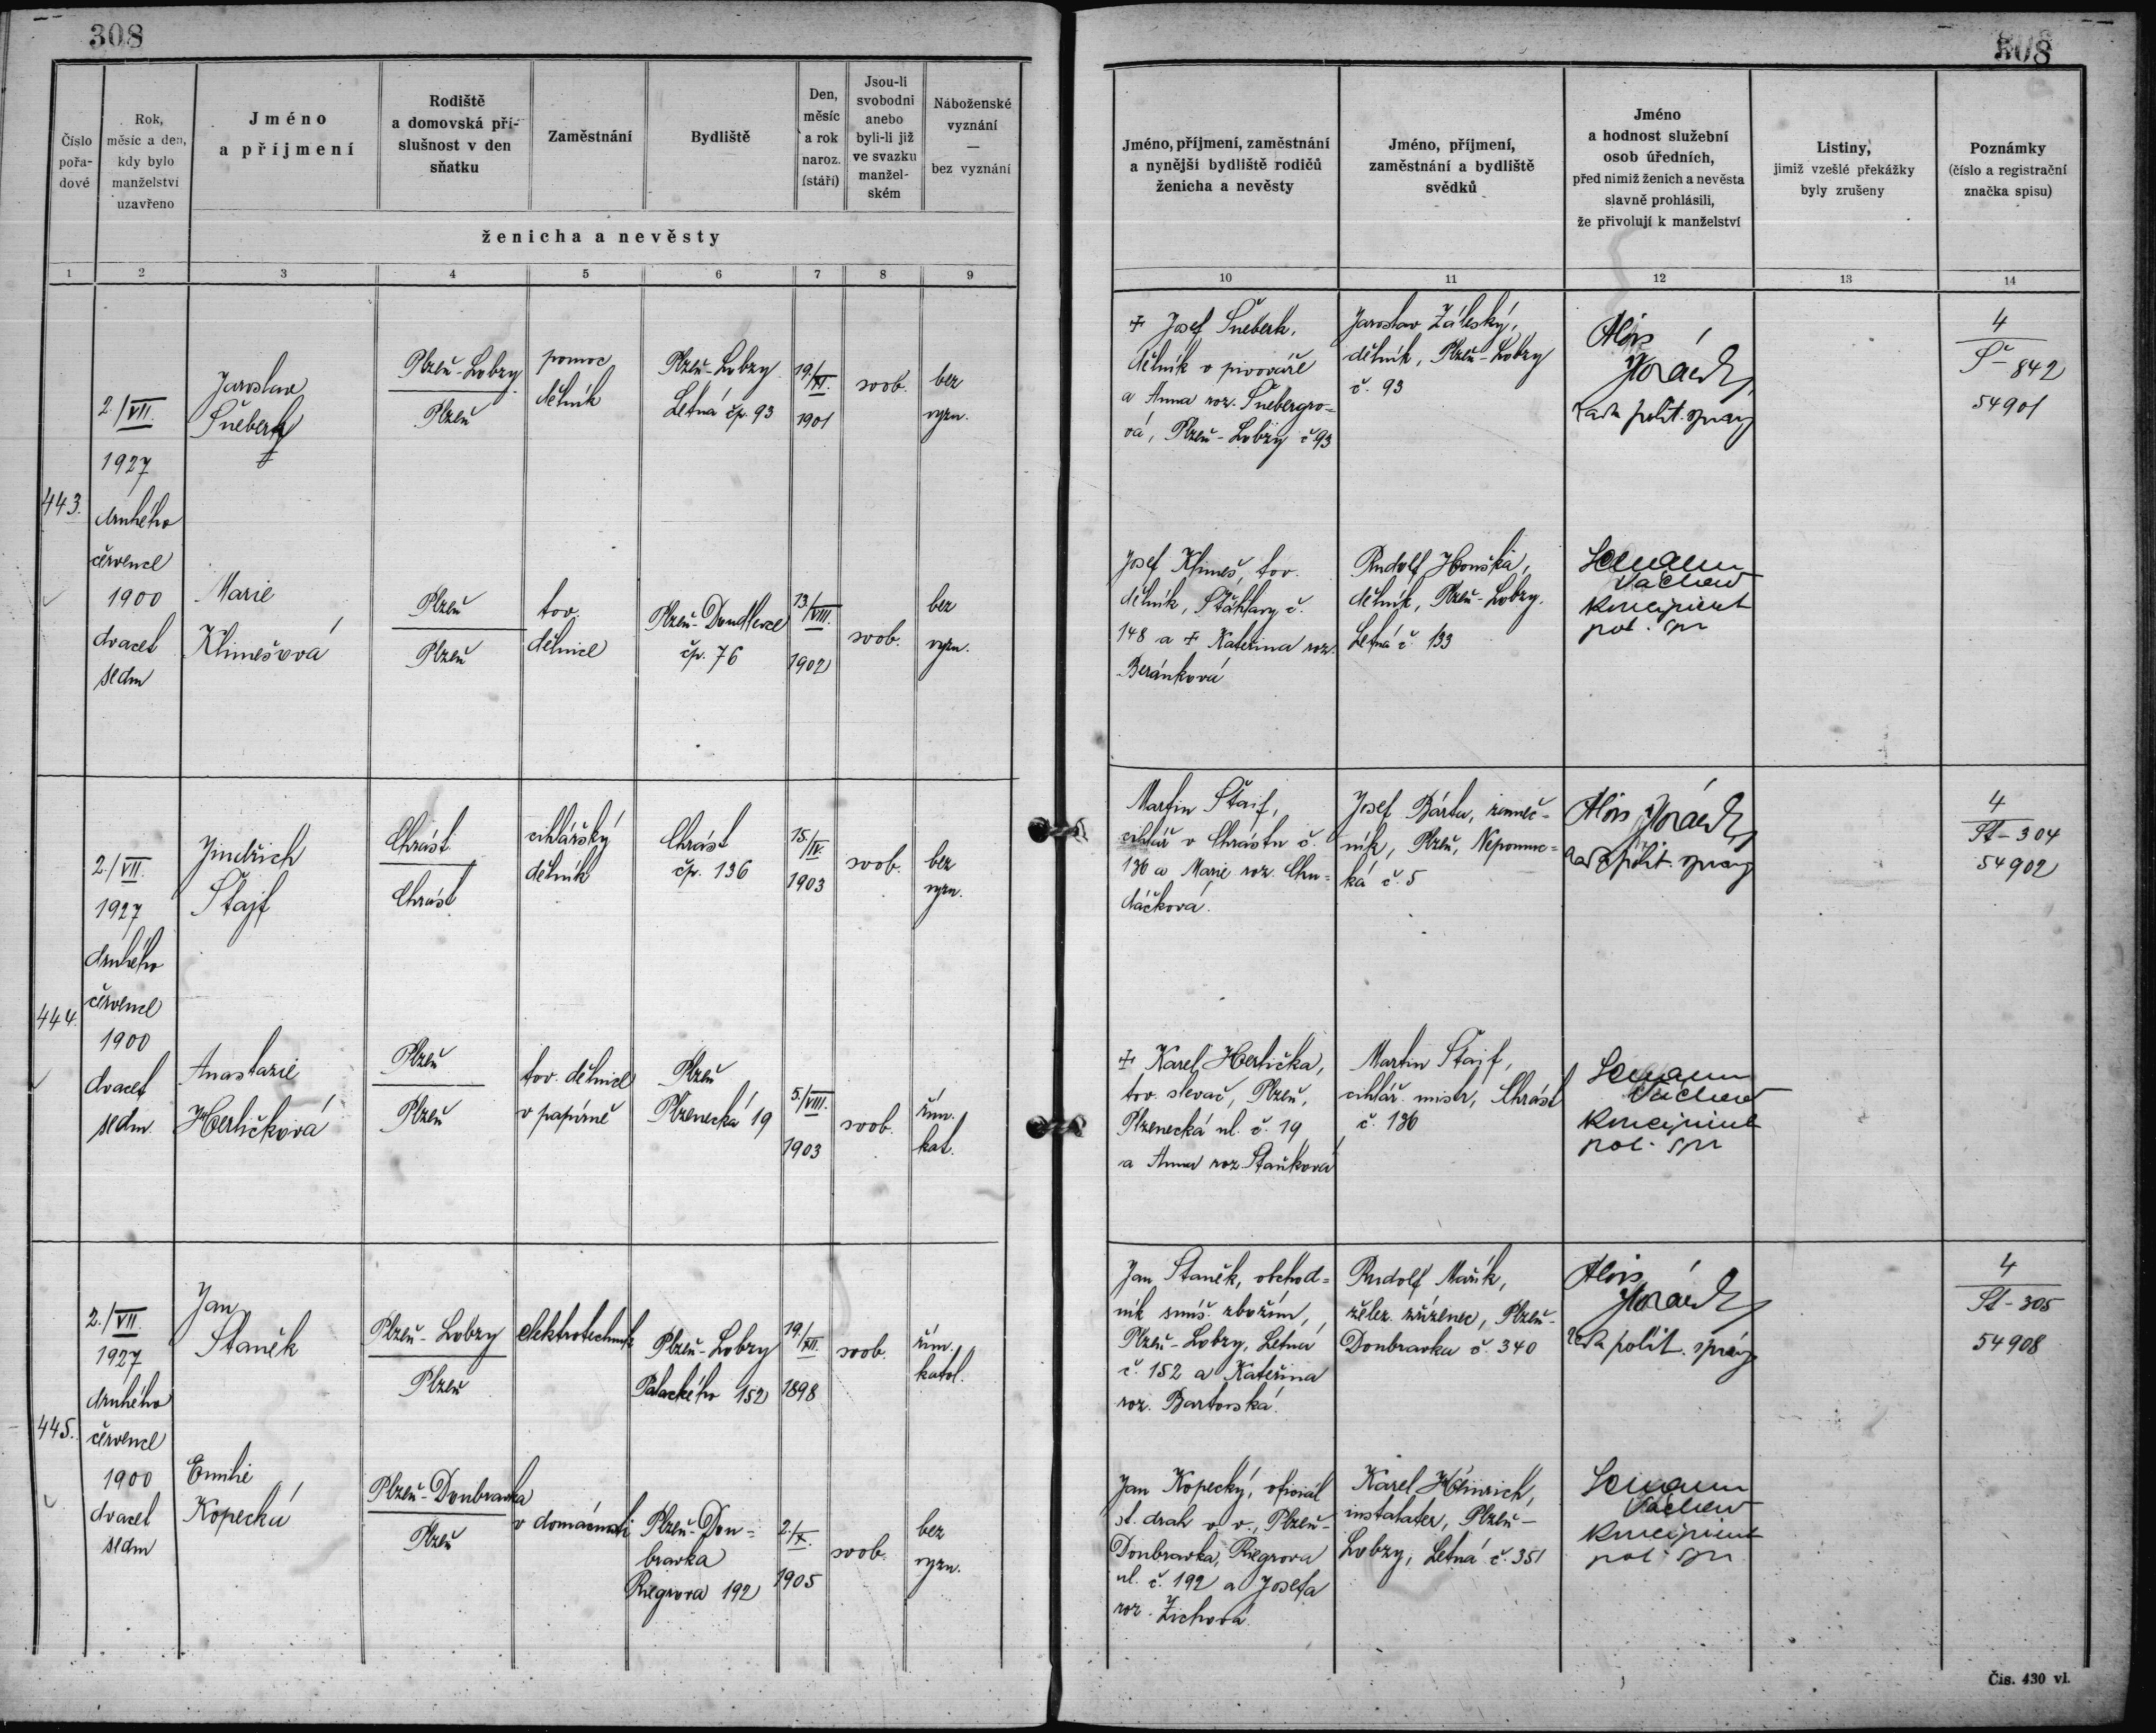 308
Číslo pořa-dové
Rok, měsíc a den, kdy bylo manželství uzavřeno
Jméno a příjmení
Rodiště a domovská pří-slušnost v den sňatku
Zaměstnání
Bydliště
Den, měsíc a rok naroz. (stáří)
Jsou-li svobodni anebo byli-li již ve svazku manžel-ském
Náboženské vyznání — bez vyznání
ženicha a nevěsty
1 2 3 4 5 6 7 8 9
443.
2./VII.
1927
druhého
července
1900
dvacet
sedm
Jaroslav
Šneberk
Plzeň-Lobzy
Plzeň
pomoc.
dělník
Plzeň-Lobzy
Letná čp. 93
19./XI.
1901
svob.
bez
vyzn.
Marie
Klimešová
Plzeň
Plzeň
tov.
dělnice
Plzeň-Doudlevce
čp. 76
13./VIII.
1902
svob.
bez
vyzn.
444.
2./VII.
1927
druhého
července
1900
dvacet
sedm.
Jindřich
Štajf
Chrást
Chrást
cihlářský
dělník
Chrást
čp. 136
15./IV.
1903
svob.
bez
vyzn.
Anastazie
Herličková
Plzeň
Plzeň
tov. dělnice
v papírně
Plzeň
Plzenecká 19
5./VIII.
1903
svob.
řím.
kat.
445.
2./VII.
1927
druhého
července
1900
dvacet
sedm
Jan
Staněk
Plzeň-Lobzy
Plzeň
elektrotechnik
Plzeň-Lobzy
Palackého 152
19./XII.
1898
svob.
řím.
katol.
Emilie
Kopecká
Plzeň-Doubravka
Plzeň
v domácnosti
Plzeň-Dou-
bravka
Riegrova 192
2./X.
1905
svob.
bez
vyzn.
308
Jméno, příjmení, zaměstnání a nynější bydliště rodičů ženicha a nevěsty
Jméno, příjmení, zaměstnání a bydliště svědků
Jméno a hodnost služební osob úředních, před nimiž ženich a nevěsta slavně prohlásili, že přivolují k manželství
Listiny, jimiž vzešlé překážky byly zrušeny
Poznámky (číslo a registrační značka spisu)
10 11 12 13 14
+ Josef Šneberk,
dělník v pivováře
a Anna roz. Šnebergro-
vá, Plzeň-Lobzy č 93
Jaroslav Záleský,
dělník, Plzeň-Lobzy
č. 93
Alois
rada polit. správy
4
Š-842
54901
Josef Klimeš, tov.
dělník, Šťáhlavy č.
148 a + Kateřina roz.
Beránková
Rudolf Houška,
dělník, Plzeň-Lobzy.
Letná č. 133
koncipient
pol. spr
Martin Štaif,
cihlář v Chrástu č.
136 a Marie roz. Chu-
dáčková.
Josef Bárta, řemesl-
ník, Plzeň, Nepomuc-
ká č. 5
Alois
rada polit. správy
4
Št-304
54902
+ Karel Herlička,
tov. slevač, Plzeň,
Plzenecká ul. č. 19
a Anna roz Staňková
Martin Štajf,
cihlář. mistr, Chrást
č. 136
koncipient
pol. spr
Jan Staněk, obchod-
ník smíš. zbožím,
Plzeň-Lobzy, Letná
č. 152 a Kateřina
roz. Bartovská.
Rudolf Mařík,
želez. zřízenec, Plzeň-
Doubravka č. 340
Alois
rada polit. správy
4
St-305
54908
Jan Kopecký, oficiál
st. drah v v., Plzeň-
Doubravka, Riegrova
ul. č. 192 a Josefa
roz. Zichová
Karel Heinrich,
instalater, Plzeň-
Lobzy, Letná č. 351
koncipient
pol. spr
Čís. 430 vl.